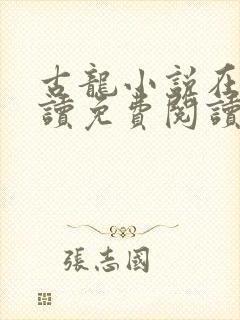 古龍小説在
讀免費閱讀
張志國